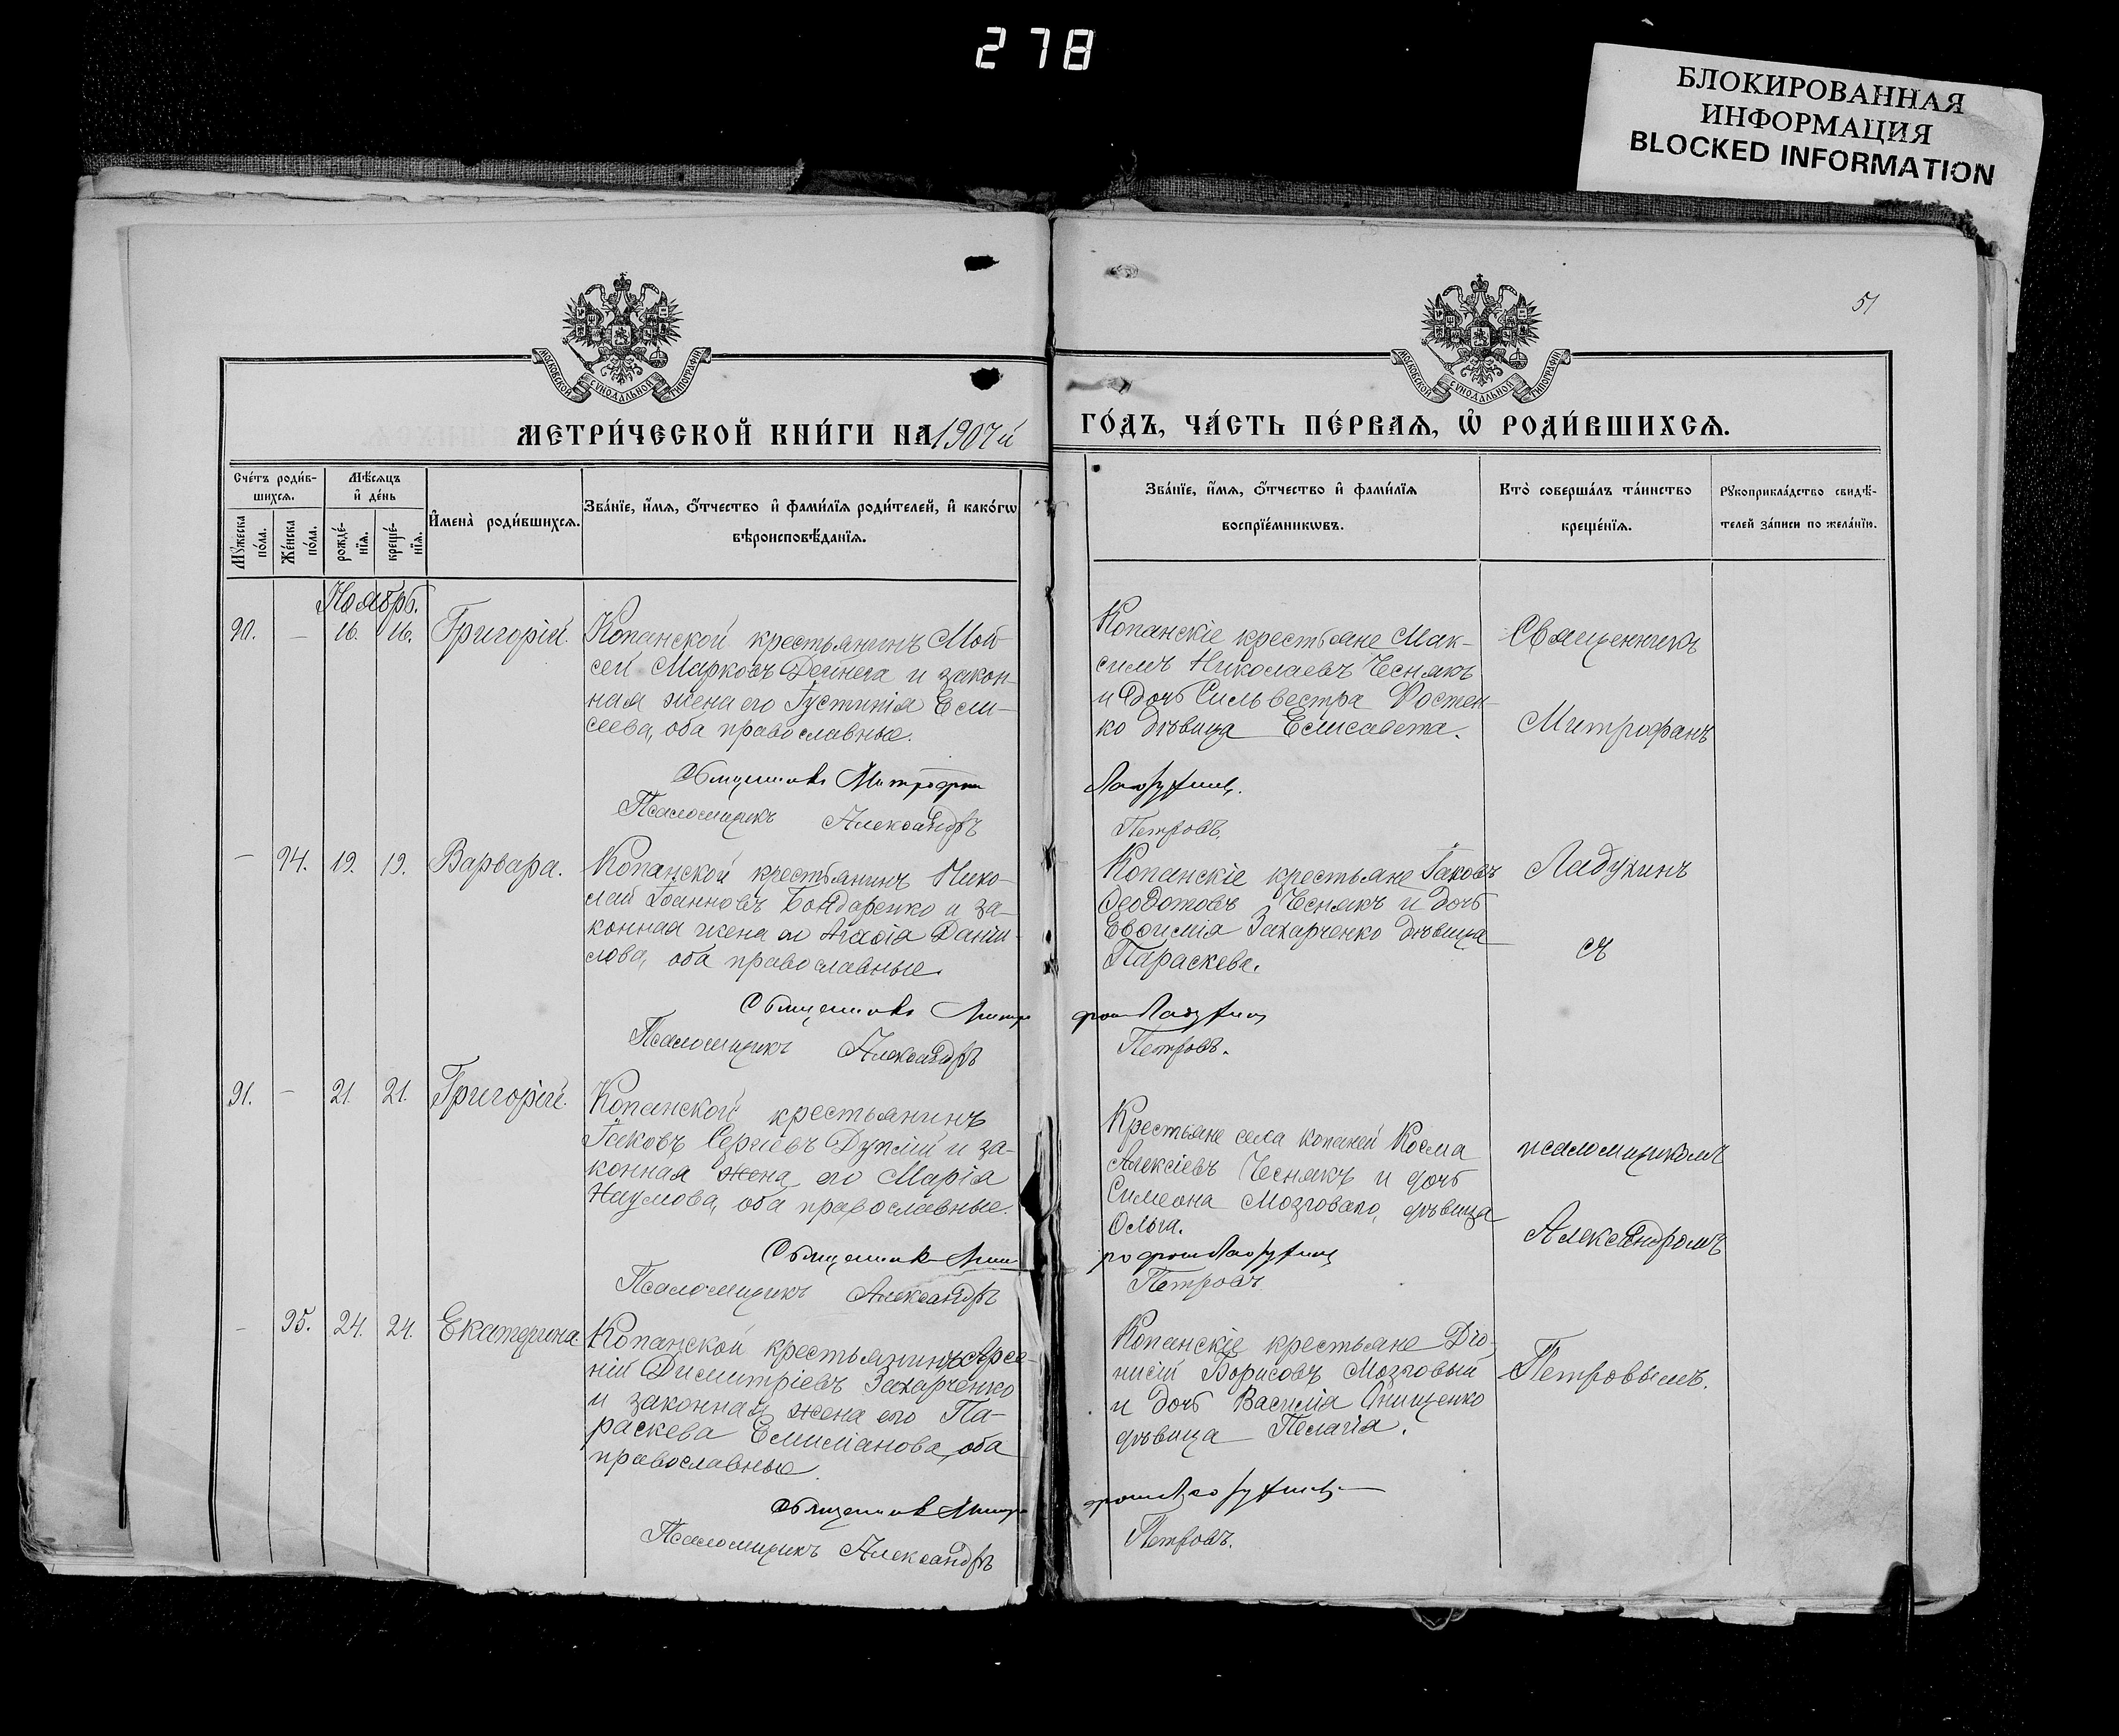 278
БЛОКИРОВАННАЯ
ИНФОРМАЦИЯ
BLOCKED INFORMATION
51
МОСКОВСКОЙ СѴНОДАЛЬНОЙ ТИПОГРАФІИ
МОСКОВСКОЙ СѴНОДАЛЬНОЙ ТИПОГРАФІИ
МЕТРИ́ЧЕСКОЙ КНИ́ГИ НА 1907й
ГО́ДЪ, ЧА́СТЬ ПЕ́РВАЯ, Ѽ РОДИ́ВШИХСЯ.
Сче́тъ роди́в-
шихся.
Му́жеска
по́ла.
Же́нска
по́ла.
Мѣ́сяцъ
и҆ де́нь
рожде́-
нїя.
креще́-
нїя.
И҆мена̀ роди́вшихся.
Зва́нїе, и҆́мя, ѻ҆́тчество и҆ фами́лїя роди́телей, и҆ како́гѡ
вѣроисповѣ́данїя.
Зва́нїе, и҆́мя, ѻ҆́тчество и҆ фами́лїя
воспрїе́мникѡвъ.
Кто̀ соверша́лъ та́инство
креще́нїя.
Рꙋкоприкла́дство свидѣ́-
телей за́писи по жела́нїю.
Ноябрь.
90. — 16. 16. Григорій.
Копанской крестьянинъ Мои
сей Марковъ Дейнега и закон-
ная жена его Іустинія Ели-
сеева, оба православные.
Священникъ Митрофан
Псаломщикъ Александръ
Копанскіе крестьяне Мак-
симъ Николаевъ Чеснякъ
и дочь Сильвестра Фостен-
ко дѣвица Елисавета.
Ладухинъ.
Петровъ.
Священникъ
Митрофанъ
— 94. 19. 19. Варвара.
Копанской крестьянинъ Нико-
лай Іоанновъ Бондаренко и за-
конная жена его Агафія Дании-
лова, оба православные.
Священникъ Митро
Псаломщикъ Александръ
Копанскіе крестьяне Іаковъ
Ѳеодотовъ Чеснякъ и дочь
Евѳимія Захарченко дѣвица
Параскева.
фанъ Ладухинъ
Петровъ.
Ладухинъ
съ
91. — 21. 21. Григорій.
Копанской крестьянинъ
Іаковъ Сергіевъ Дуплий и за-
конная жена его Марія
Наумова, оба православные.
Священникъ Мит
Псаломщикъ Александръ
Крестьяне села Копаней Косма
Алексіевъ Чеснякъ и дочь
Симеона Мозгового, дѣвица
Ольга.
рофанъ Ладухинъ
Петровъ.
псаломщикомъ
Александромъ
— 95. 24. 24. Екатерина.
Копанской крестьянинъ Арсе-
ній Димитріевъ Захарченко
и законная жена его Па-
раскева Емиліанова, оба
православные.
Священникъ Митро
Псаломщикъ Александръ
Копанскіе крестьяне Діо-
нисій Борисовъ Мозговый
и дочь Василія Онищенко
дѣвица Пелагія.
фанъ Ладухинъ
Петровъ.
Петровымъ.